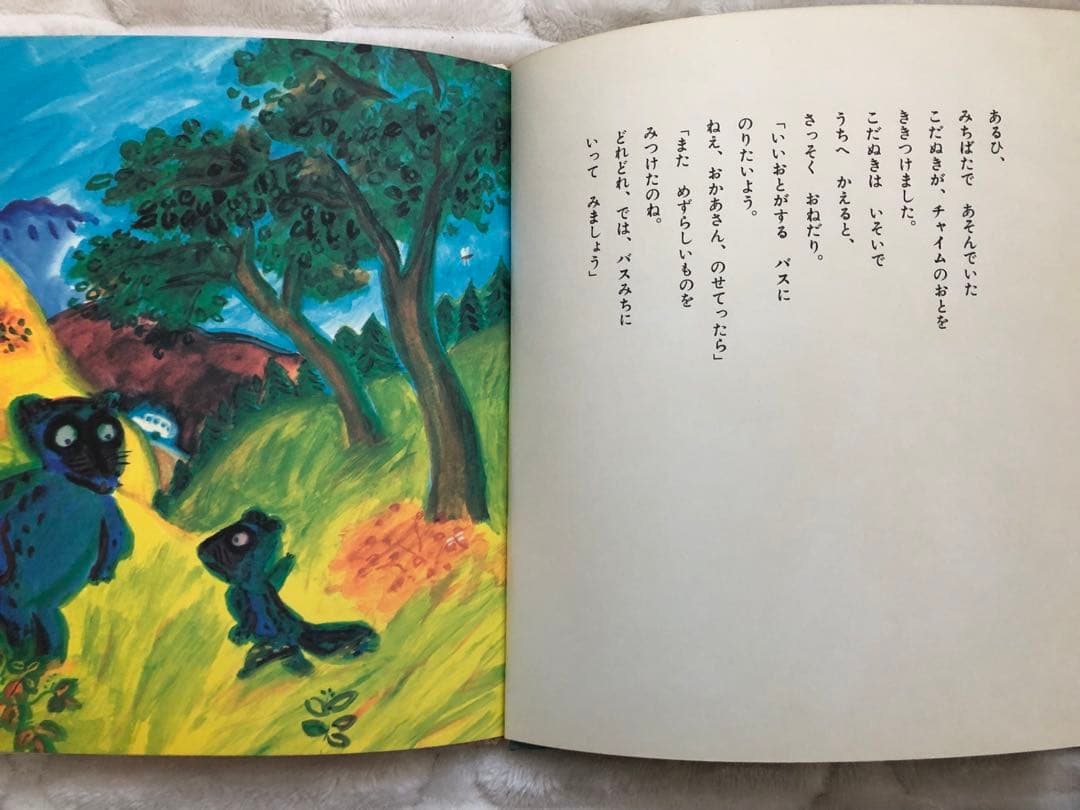 あるひ、
みちばたで　あそんでいた
こだぬきが、チャイムのおとを
ききつけました。
こだぬきは　いそいで
うちへ　かえると、
さっそく　おねだり。
「いいおとがする　バスに
のりたいよう。
ねえ、おかあさん、のせてったら」
「また　めずらしいものを
みつけたのね。
どれどれ、では、バスみちに
いって　みましょう」